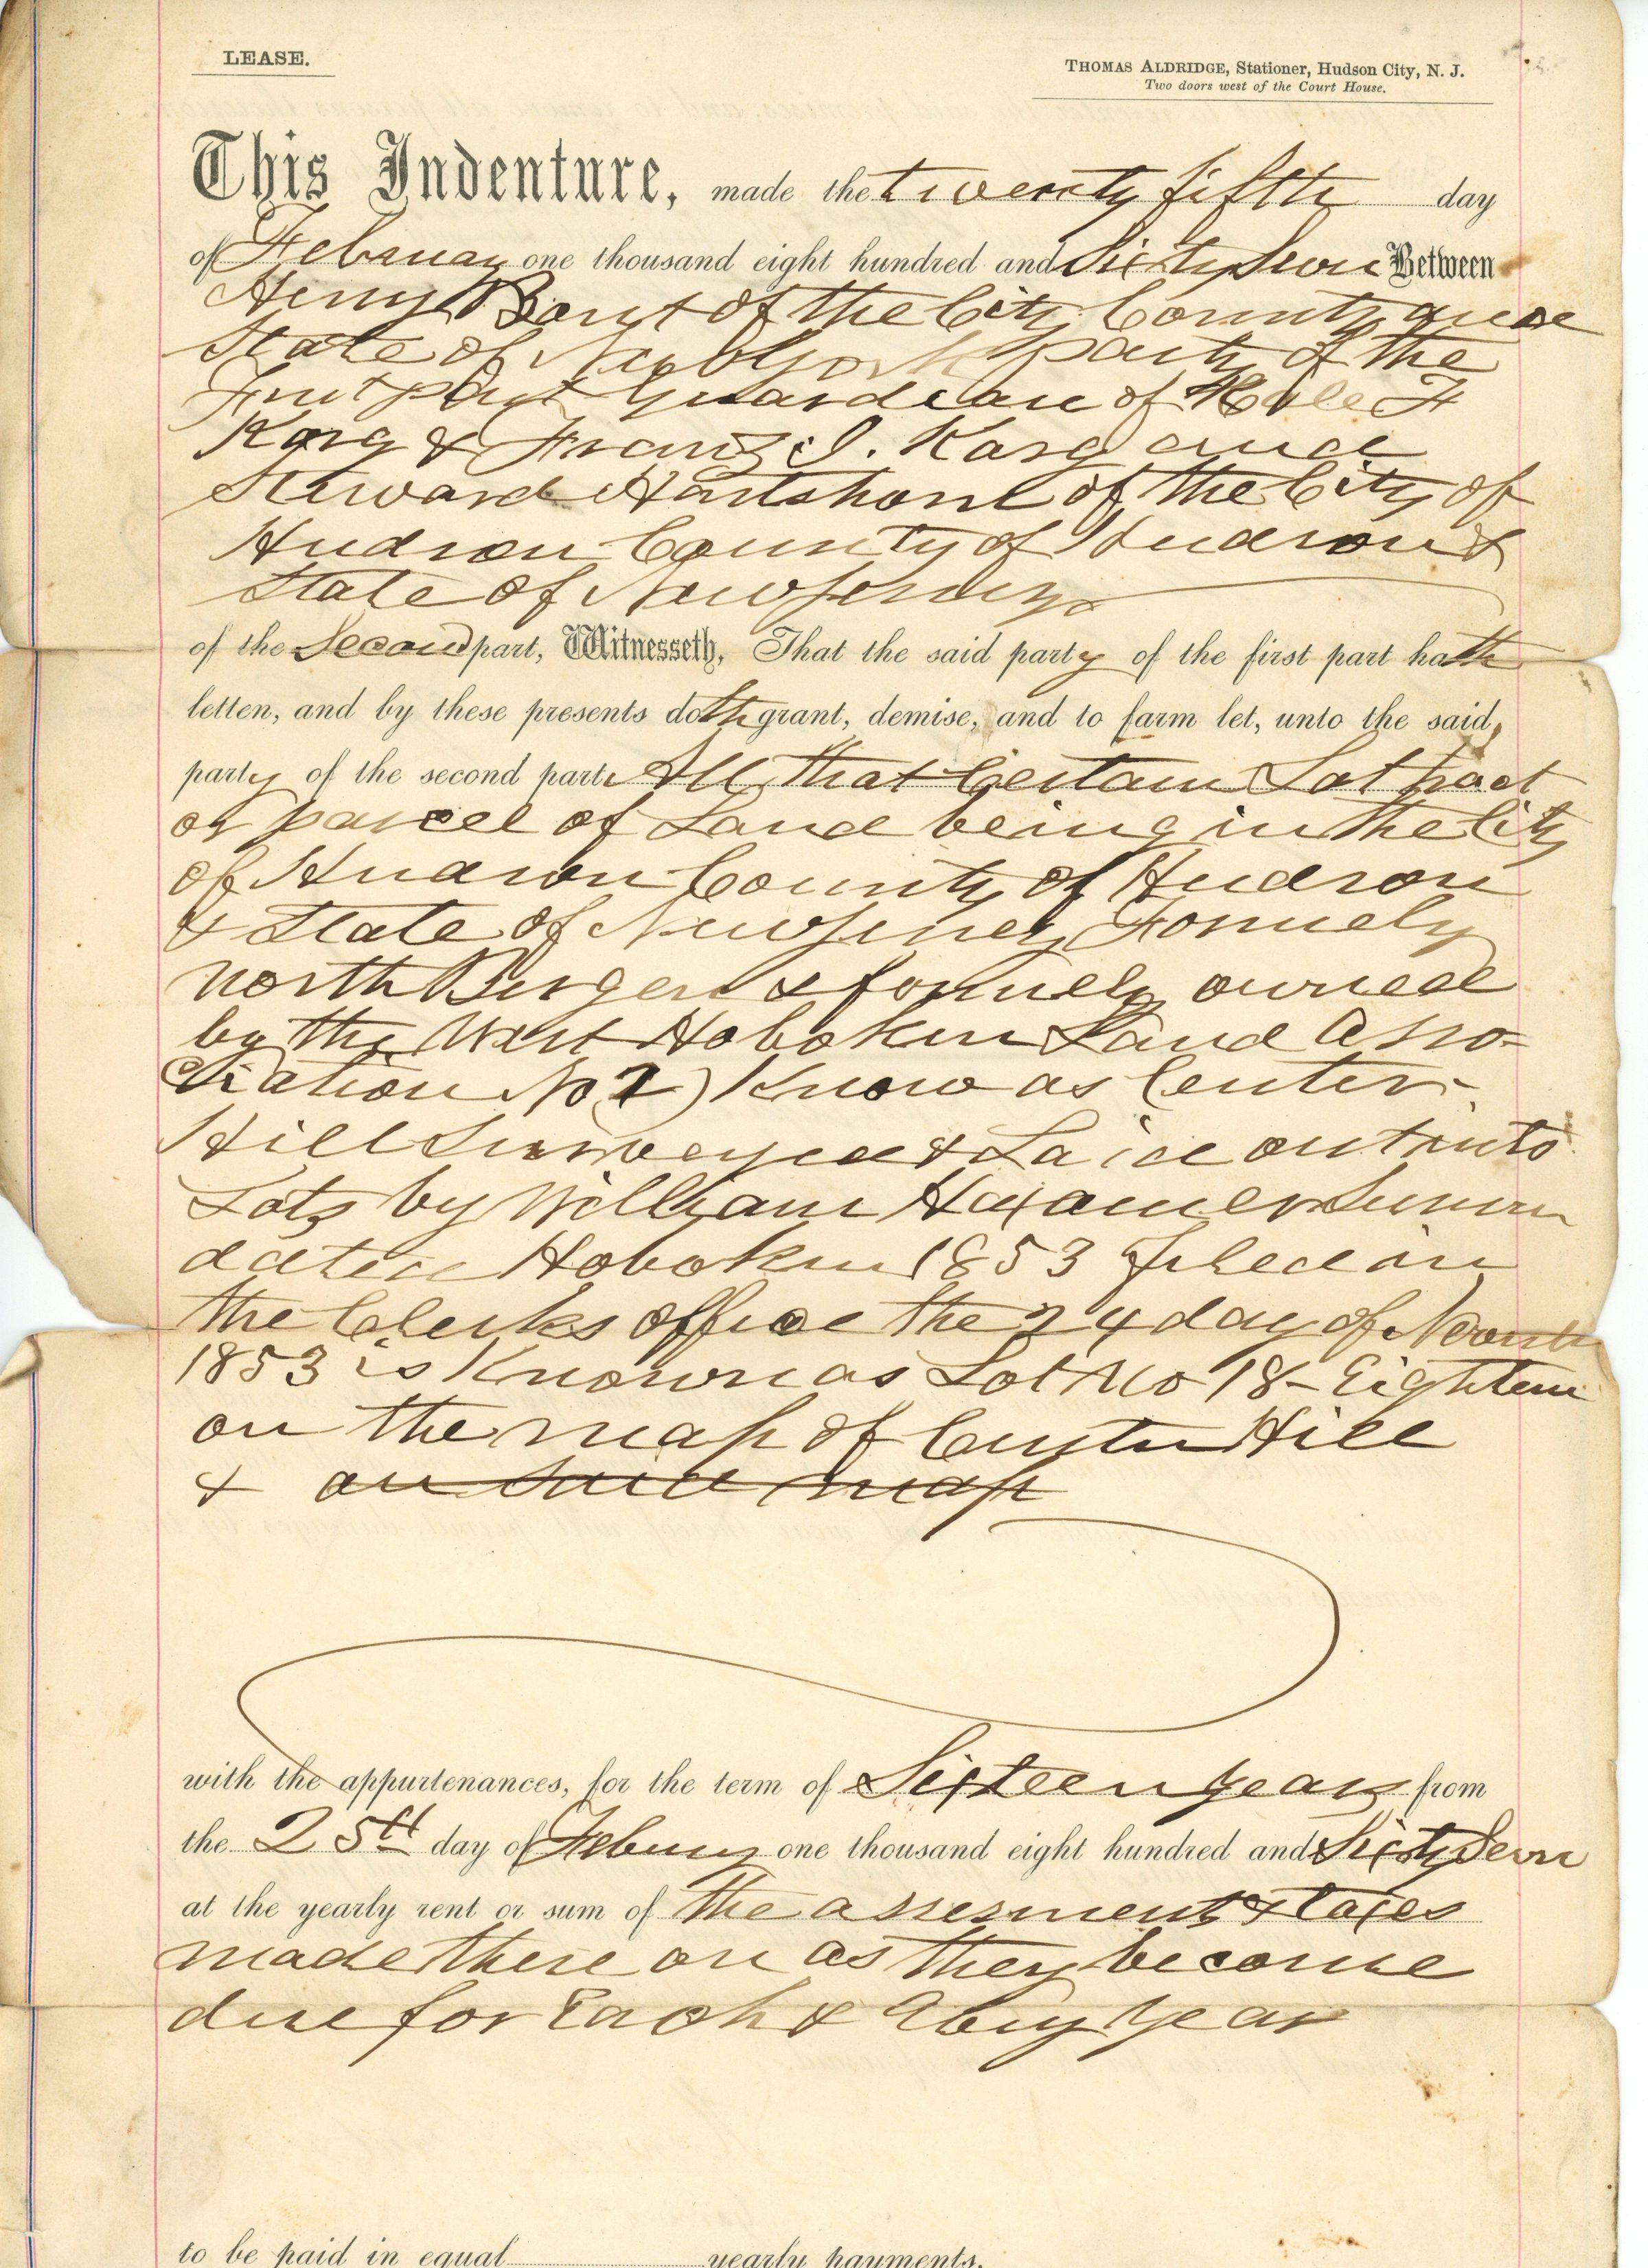 LEASE.
THOMAS ALDRIDGE, Stationer, Hudson City, N. J.
Two doors west of the Court House.
This Indenture, made the twenty fifth day
of February one thousand eight hundred and Sixty Seven Between
Henry of the City County and
State of New York party of the
First part Guardian of F
Karg & Franz J. Karg and
Steward Hartshorn of the City of
Hudson County of Hudson &
State of New Jersey
of the Second part, Witnesseth, That the said party of the first part hath
letten, and by these presents doth grant, demise, and to farm let, unto the said
party of the second part All that Certain Lot tract
or parcel of Land being in the City
of Hudson County of Hudson
& State of New Jersey Formely
North Bergen & formely owned
by the West Hoboken Land Asso-
ciation No 2) Know as Center
Hill Surveyed & Laid out into
Lots by William Haxamer
dated Hoboken 1853 Filed in
the Clerks office the 24 day of
1853 is Known as Lot No 18 - Eighteen
on the map of Center Hill
& on said map
with the appurtenances, for the term of Sixteen years from
the 25th day of Febuary one thousand eight hundred and Sixty Seven
at the yearly rent or sum of the assesments & taxes
made there on as they become
due for Each & Every Year
to be paid in equal yearly payments.